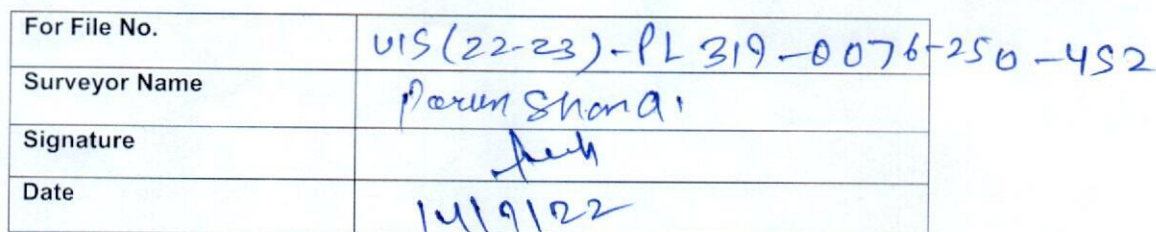 For File No. VIS(22-23)-PL319-0076-250-452
Surveyor Name
Signature
Date 14/9/22